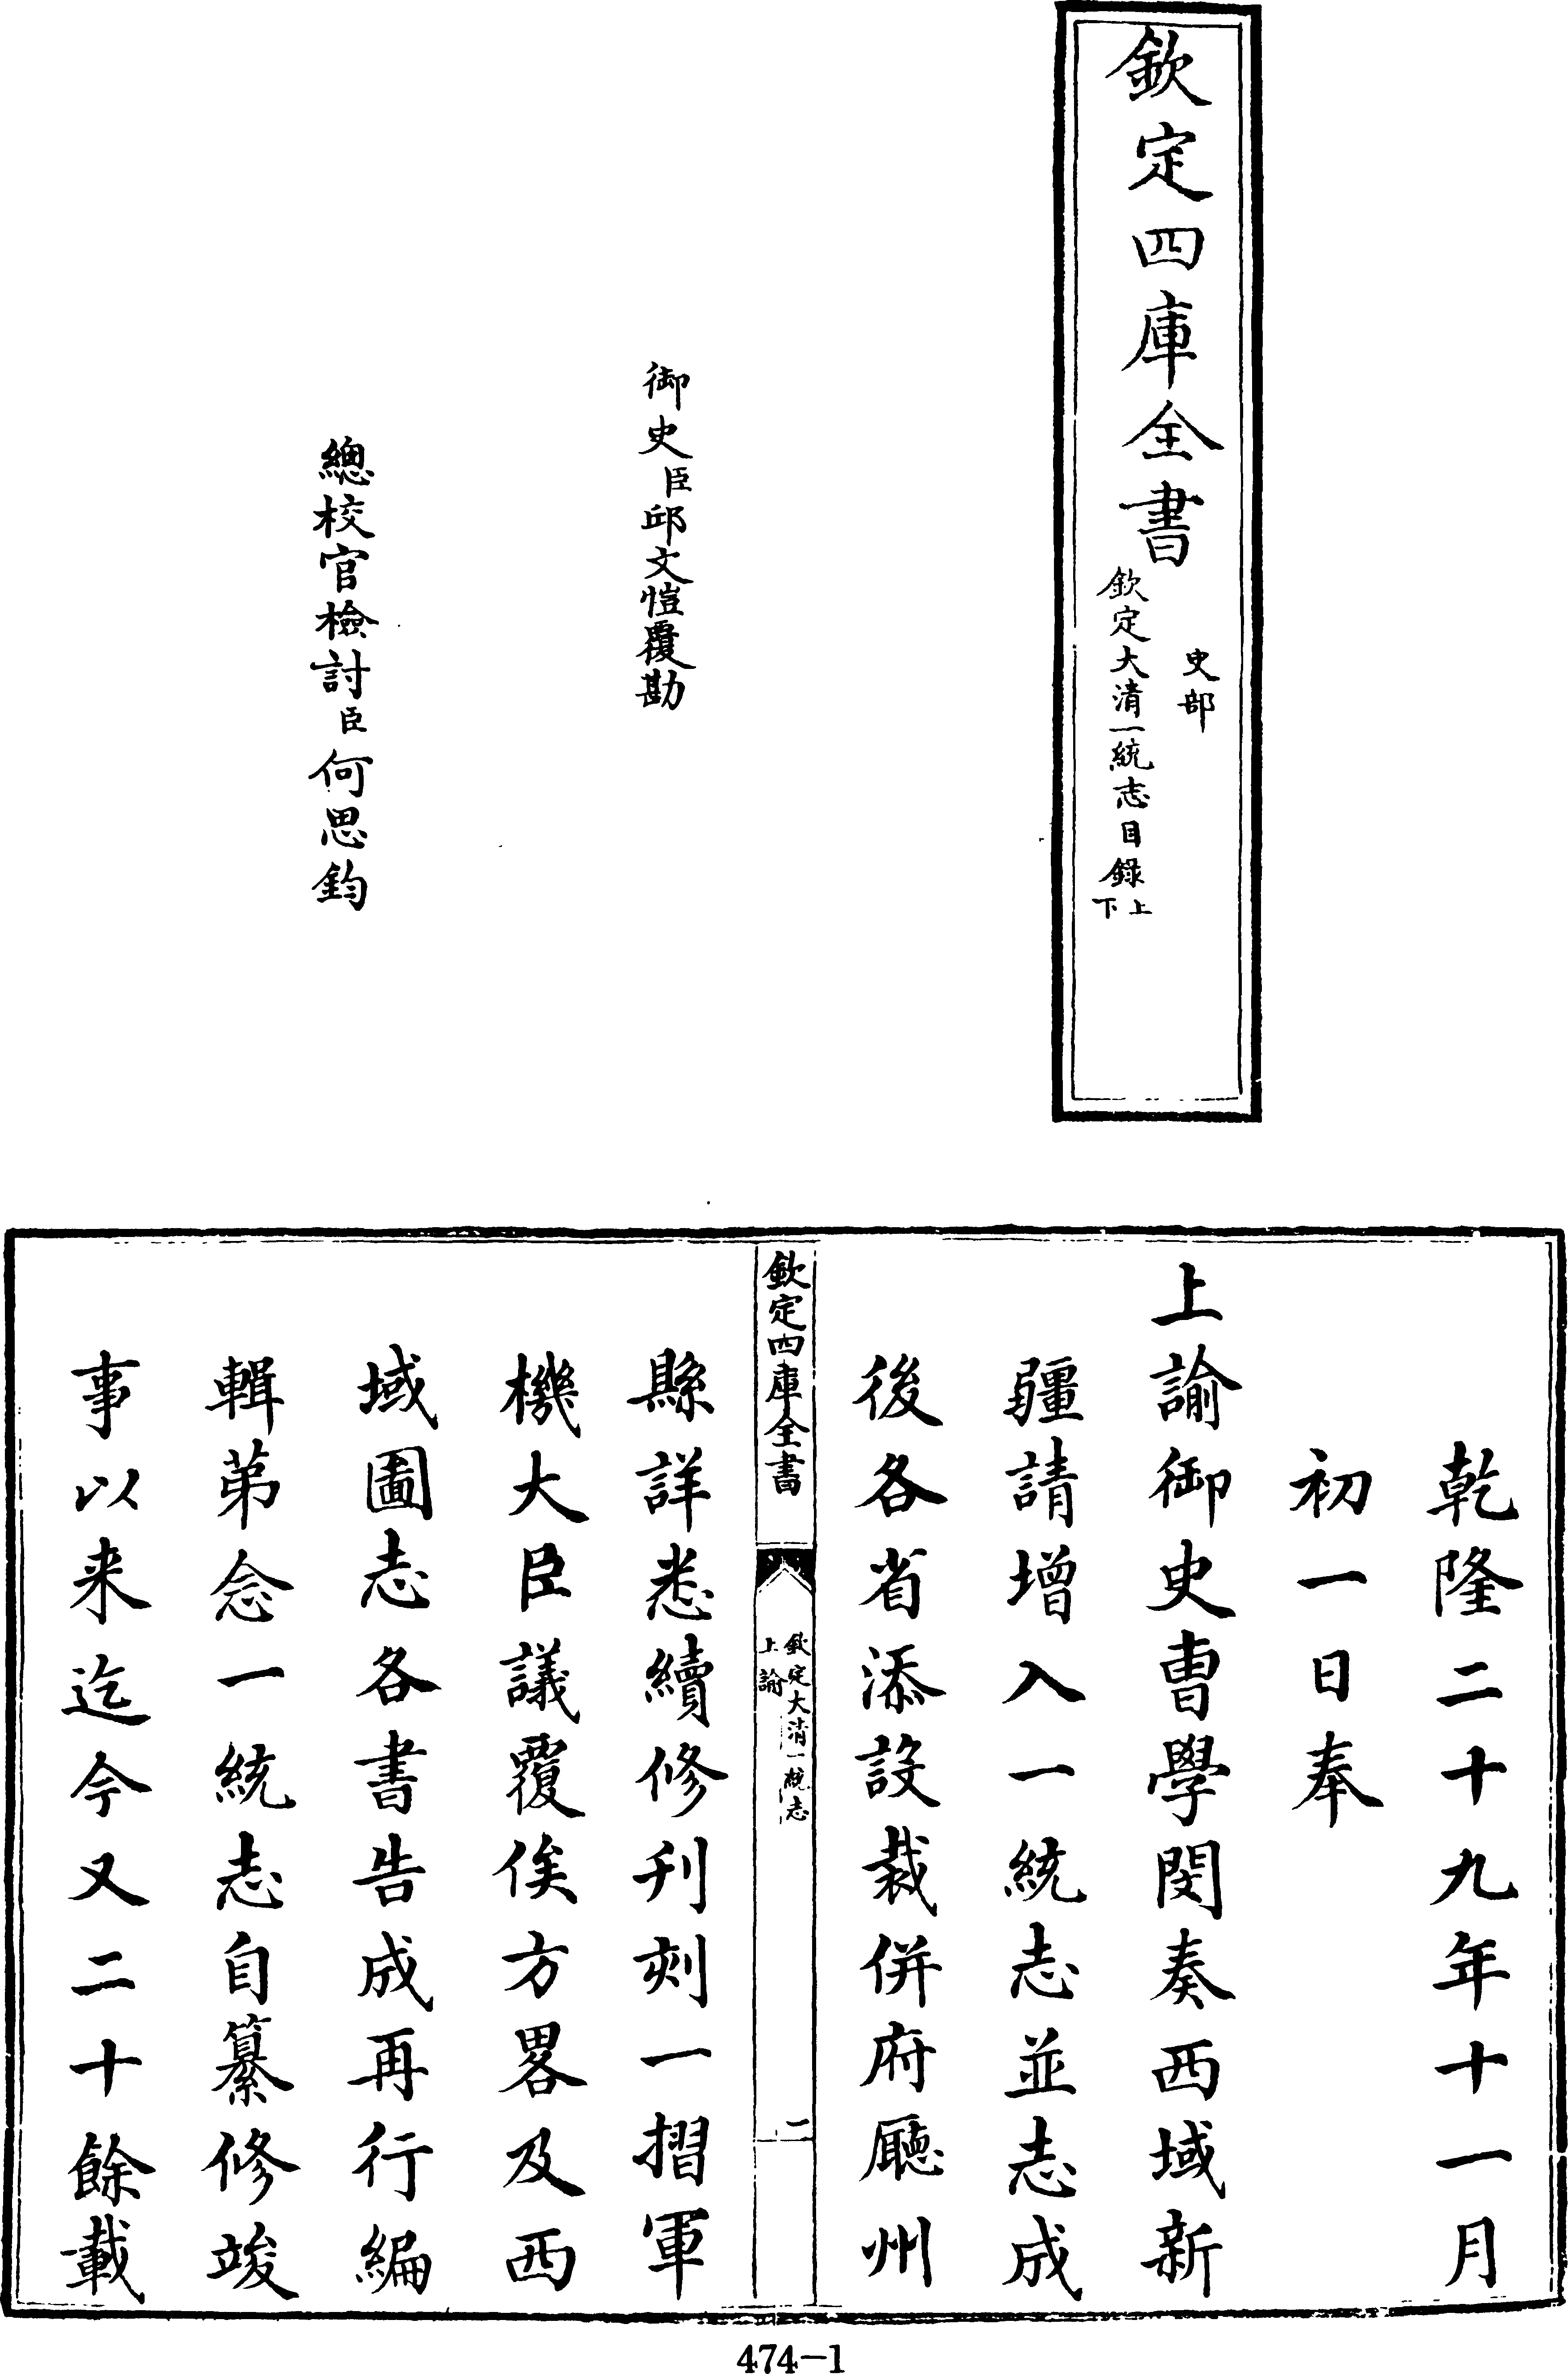 欽定四庫全書
史部
欽定大清一統志目錄上下
御史臣邱文愷覆勘
總校官檢討臣何思鈞
乾隆二十九年十一月
初一日奉
上諭御史曹學閔奏西域新
疆請增入一統志並志成
後各省添設裁併府廳州
欽定四庫全書
欽定大清一統志
上諭
縣詳悉續修刊刻一摺軍
機大臣議覆俟方畧及西
域圖志各書告成再行編
輯第念一統志自纂修竣
事以来迄今又二十餘載
474-1